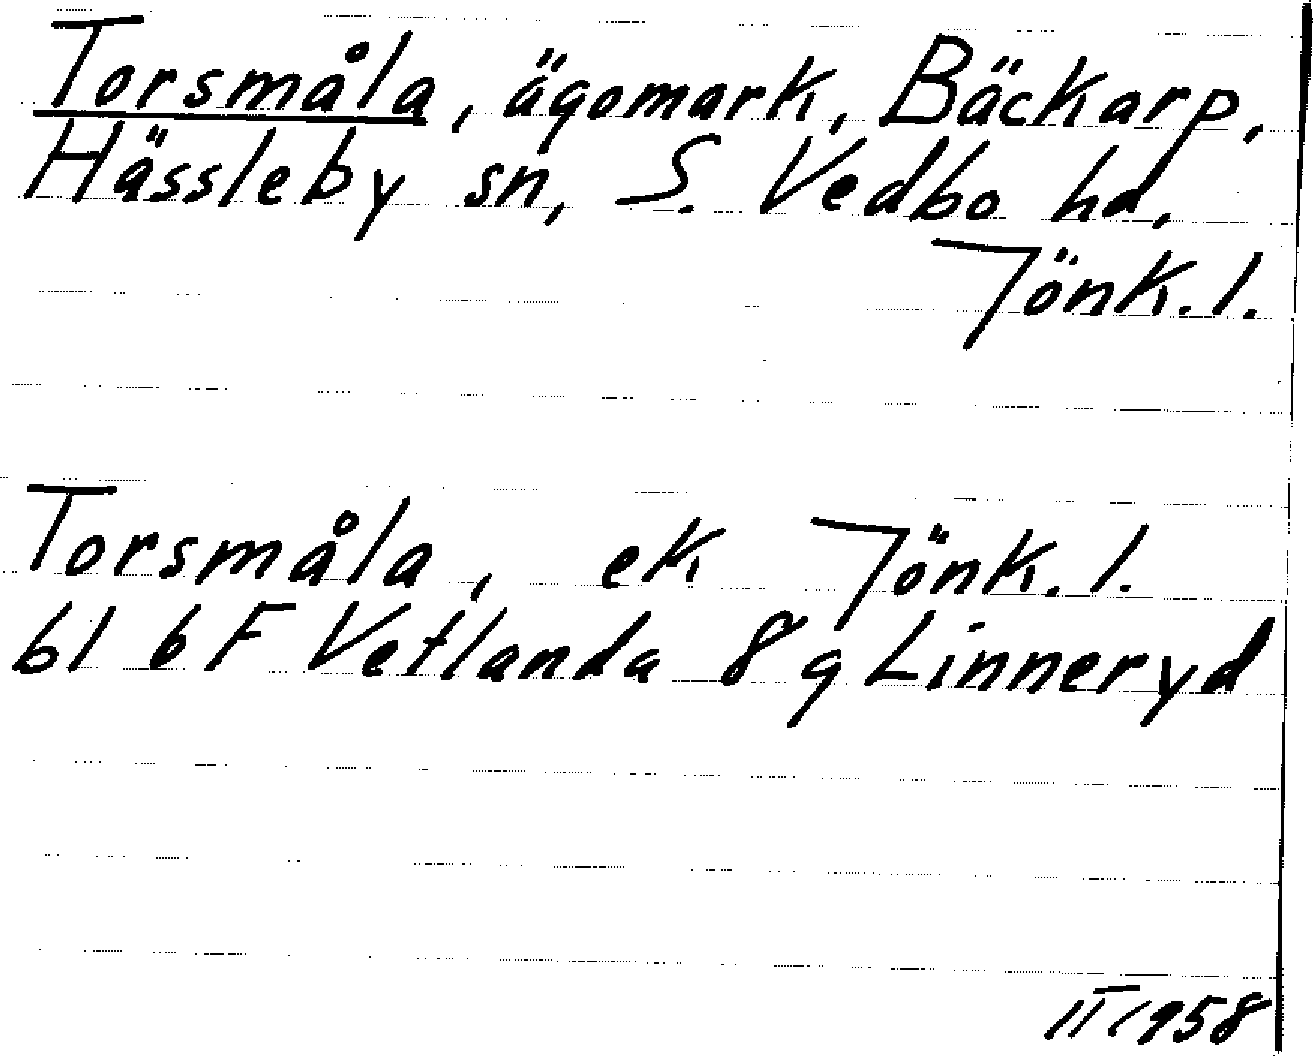 Torsmåla, ägomark, Bäckarp,
Hässleby sn, S. Vedbo hd,
Jönk. l.
Torsmåla, ek Jönk. l.
bl 6F Vetlanda 8g Linneryd
1958